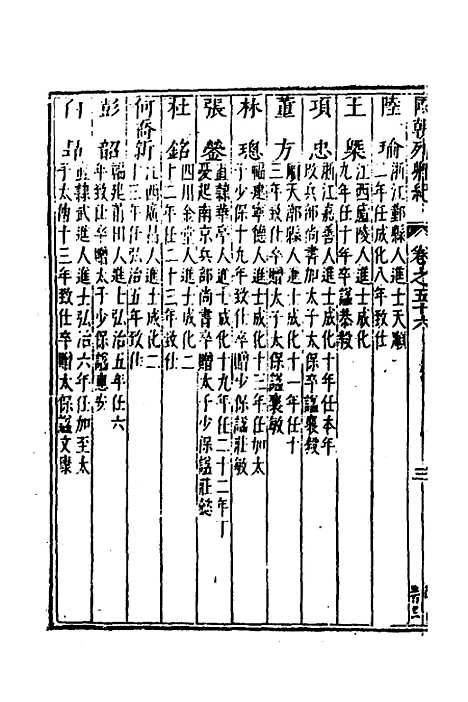 國朝列卿紀 卷之五十六 三
陸瑜 浙江鄞縣人進士天順
二年任成化八年致仕
王槩 江西廬陵人進士成化
九年任十年卒諡恭毅
項忠 浙江嘉善人進士成化十年任本年
改兵部尚書加太子太保卒諡襄毅
董方 順天郭縣人進士成化十一年任十
三年致仕卒贈太子太保諡襄敏
林聰 福建寧德人進士成化十三年任加太
子少保十九年致仕卒贈少保諡莊敏
張鎣 直隸華亭人進士成化十九年任二十二年丁
憂起南京兵部尚書卒贈太子少保諡莊懿
杜銘 四川金堂人進士成化二
十二年任二十三年致仕
何喬新 江西廣昌人進士成化二
十三年任弘治五年致仕
彭韶 福建莆田人進士弘治五年任六
年致仕卒贈太子少保諡惠安
白昂 直隸武進人進士弘治六年任加至太
子太傅十三年致仕卒贈太保諡